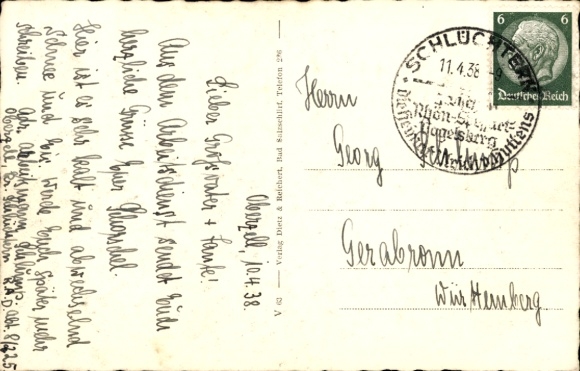 Oberzell, 10.4.38.
Lieber Großvater + Tante!
Aus dem Arbeitsdienst sendet Euch
herzliche Grüsse Euer
Hier ist es sehr kalt und abwechselnd
Schnee und Eis. Werde Euch später mehr
schreiben. Adr. Arbeitsmann
Oberzell Kr. Schlüchtern R.A.D. Abt. 8/225
V 63 — Verlag Dietz & Reichert, Bad Salzschlirf, Telefon 276
SCHLÜCHTERN
11.4.38
Rhön-Spessart-
Vogelsberg
6 6
Deutsches Reich
Herrn
Georg
Gerabronn
Württemberg